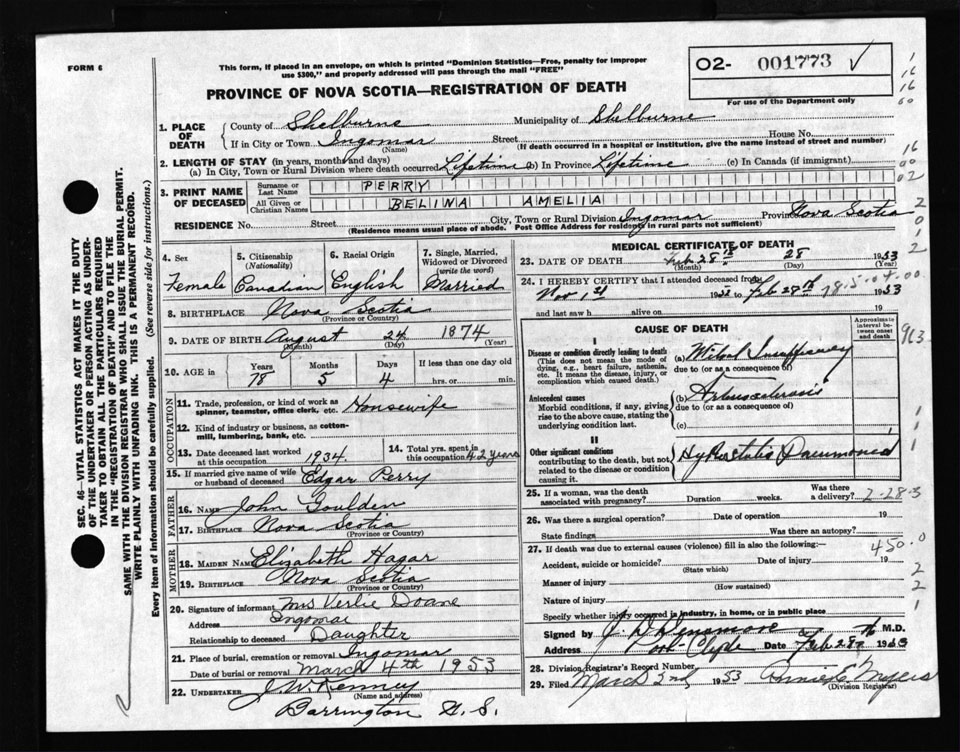 FORM 6
This form, if placed in an envelope, on which is printed "Dominion Statistics—Free, penalty for improper
use $300," and properly addressed will pass through the mail "FREE"
O2- 001773 ✓
For use of the Department only
PROVINCE OF NOVA SCOTIA—REGISTRATION OF DEATH
1. PLACE OF DEATH
County of Shelburne Municipality of Shelburne
If in City or Town Ingomar Street House No.
(Name) (If death occurred in a hospital or institution, give the name instead of street and number)
2. LENGTH OF STAY (in years, months and days)
(a) In City, Town or Rural Division where death occurred Lifetime (b) In Province Lifetime (c) In Canada (if immigrant)
3. PRINT NAME OF DECEASED
Surname or Last Name PERRY
All Given or Christian Names BELINA AMELIA
RESIDENCE No. Street City, Town or Rural Division Ingomar Province Nova Scotia
(Residence means usual place of abode. Post Office Address for residents in rural parts not sufficient)
4. Sex Female
5. Citizenship (Nationality) Canadian
6. Racial Origin English
7. Single, Married, Widowed or Divorced (write the word) Married
8. BIRTHPLACE Nova Scotia
(Province or Country)
9. DATE OF BIRTH August 24 1874
(Month) (Day) (Year)
10. AGE in Years 78 Months 5 Days 4 If less than one day old hrs. or min.
OCCUPATION
11. Trade, profession, or kind of work as spinner, teamster, office clerk, etc. Housewife
12. Kind of industry or business, as cotton-mill, lumbering, bank, etc.
13. Date deceased last worked at this occupation 1934
14. Total yrs. spent in this occupation 42 years
15. If married give name of wife or husband of deceased Edgar Perry
FATHER
16. NAME John Goulden
17. BIRTHPLACE Nova Scotia
(Province or Country)
MOTHER
18. MAIDEN NAME Elizabeth Hagar
19. BIRTHPLACE Nova Scotia
(Province or Country)
20. Signature of informant Mrs Verlie Doane
Address Ingomar
Relationship to deceased Daughter
21. Place of burial, cremation or removal Ingomar
Date of burial or removal March 4th 1953
22. UNDERTAKER J. W. Kenney
(Name and address)
Barrington N.S.
MEDICAL CERTIFICATE OF DEATH
23. DATE OF DEATH Feb 28th 28 1953
(Month) (Day) (Year)
24. I HEREBY CERTIFY that I attended deceased from
Nov 1st 1952 to Feb 28th 1953
and last saw h alive on 19
CAUSE OF DEATH
Approximate interval between onset and death
I
Disease or condition directly leading to death
(This does not mean the mode of dying, e.g., heart failure, asthenia, etc. It means the disease, injury, or complication which caused death.)
(a) Mitral Insufficiency
due to (or as a consequence of)
Antecedent causes
Morbid conditions, if any, giving rise to the above cause, stating the underlying condition last.
(b) Arteriosclerosis
due to (or as a consequence of)
(c)
II
Other significant conditions
contributing to the death, but not related to the disease or condition causing it.
Hypostatic Pneumonia
25. If a woman, was the death associated with pregnancy? Duration weeks. Was there a delivery?
26. Was there a surgical operation? Date of operation 19
State findings Was there an autopsy?
27. If death was due to external causes (violence) fill in also the following:
Accident, suicide or homicide? Date of injury 19
(State which)
Manner of injury
(How sustained)
Nature of injury
Specify whether injury occurred in industry, in home, or in public place
Signed by Densmore M.D.
Address Port Clyde Date Feb 28th 1953
28. Division Registrar's Record Number
29. Filed March 2nd 1953 Annie E. Myers
(Division Registrar)
SEC. 46—VITAL STATISTICS ACT MAKES IT THE DUTY
OF THE UNDERTAKER OR PERSON ACTING AS UNDER-
TAKER TO OBTAIN ALL THE PARTICULARS REQUIRED
IN THE "REGISTRATION OF DEATH" AND TO FILE THE
SAME WITH THE DIVISION REGISTRAR WHO SHALL ISSUE THE BURIAL PERMIT.
WRITE PLAINLY WITH UNFADING INK. THIS IS A PERMANENT RECORD.
Every item of information should be carefully supplied. (See reverse side for instructions.)
963
2-28-3
450.0